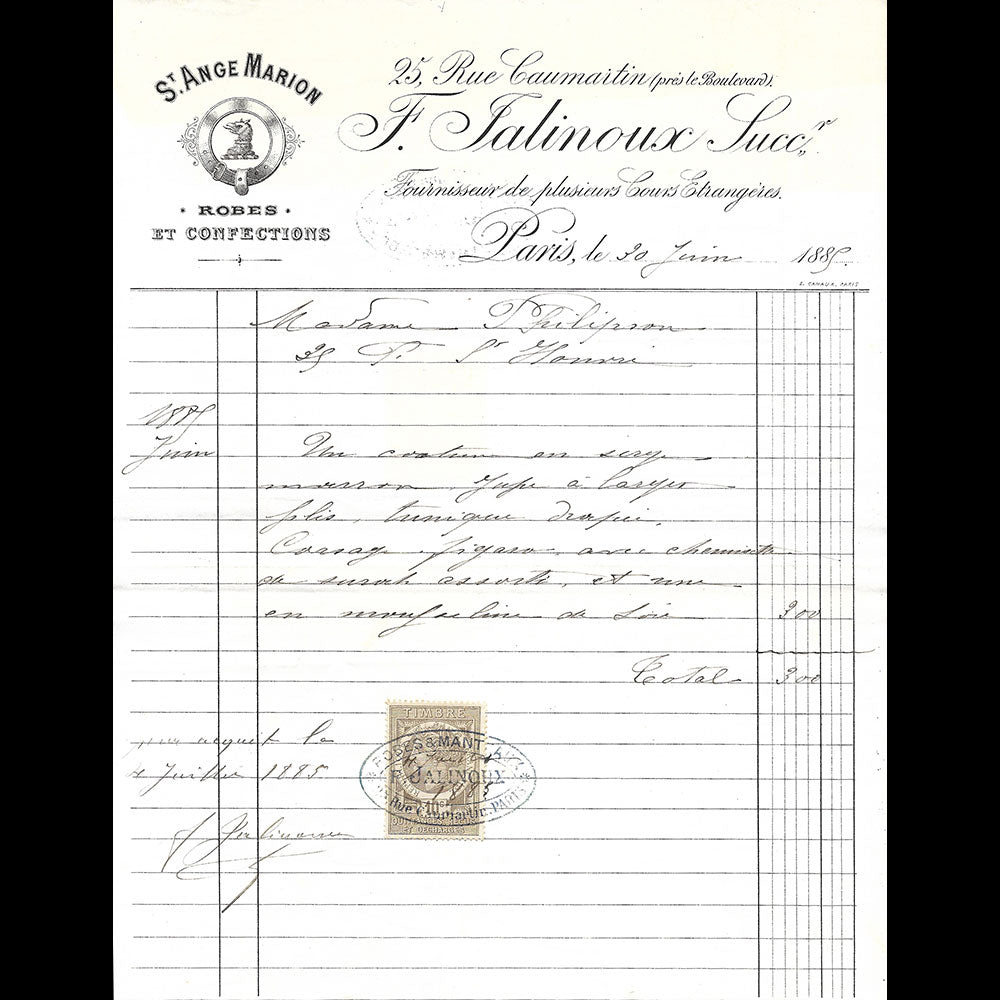 ST ANGE MARION
ROBES
ET CONFECTIONS
25, Rue Caumartin (près le Boulevard).
F. Jalinoux Succr.
Fournisseur de plusieurs Cours Etrangères.
Paris, le 30 Juin 1885
E. CANAUX, PARIS
Madame Philipson
35 F. St Honoré
1885
Juin
Un costume en serge
marron, Jupe à larges
plis, tunique drapée,
Corsage figaro, avec chemisette
de surah assorti, et une
en mousseline de soie 300
Total 300
pour acquit le
4 Juillet 1885
F Jalinoux
TIMBRE
ROBES & MANTEAUX
4 Juillet
F. JALINOUX
1885
25, Rue Caumartin. PARIS
10c
QUITTANCES REÇUS
ET DÉCHARGES